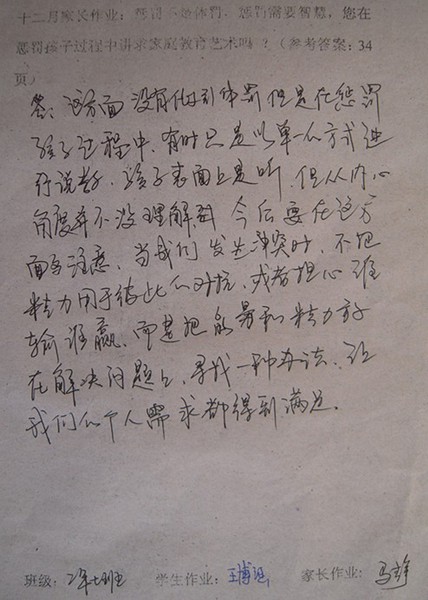 十二月家长作业：惩罚不是体罚，惩罚需要智慧，您在
惩罚孩子过程中讲求家庭教育艺术吗？（参考答案：34
页）
答：这方面没有做到体罚但是在惩罚
孩子过程中，有时只是以单一的方式进
行说教，孩子表面上是听，但从内心
角度并不没理解到 今后要在这方
面多注意，当我们发生冲突时，不把
精力用于彼此的对抗，或者担心谁
输谁赢，而是把能量和精力放
在解决问题上，寻找一种办法，让
我们的个人需求都得到满足。
班级：2年七班 学生作业：王博 家长作业：马